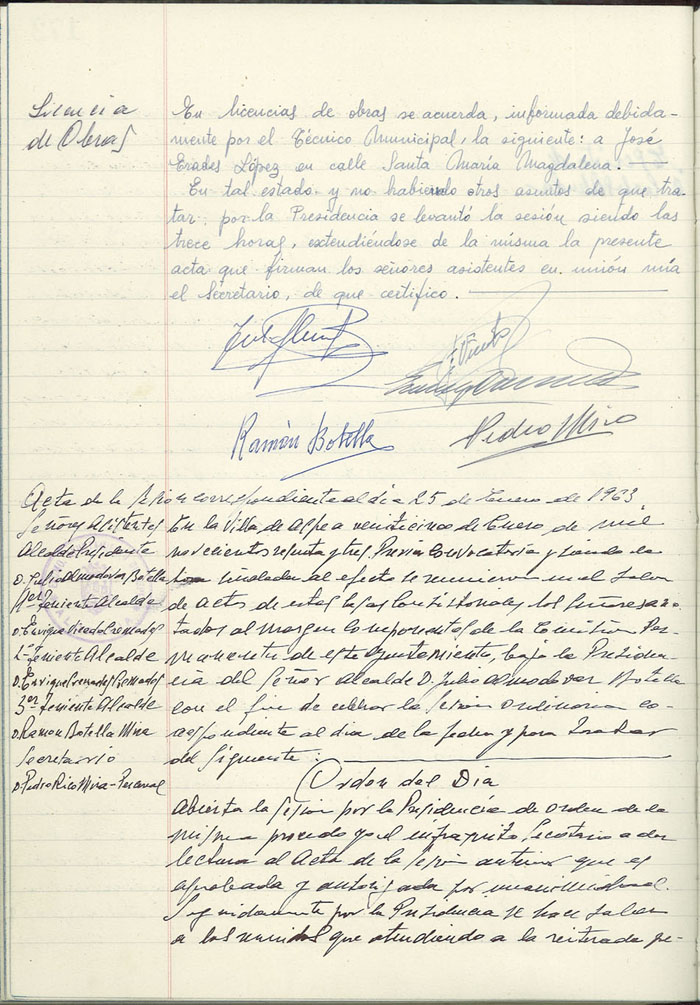 Licencia
de Obras
En licencias de obras se acuerda, informada debida-
mente por el Técnico Municipal, la siguiente: a José
Erades López en calle Santa María Magdalena.
En tal estado y no habiendo otros asuntos de que tra-
tar, por la Presidencia se levantó la sesión siendo las
trece horas, extendiéndose de la misma la presente
acta que firman los señores asistentes en unión mía
el Secretario, de que certifico.
Ramón Botella
Pedro Mira
Acta de la Sesion correspondiente al dia 25 de Enero de 1963
Señores Asistentes
Alcalde Presidente
D. Julio Almodovar Botella
1er Teniente Alcalde
D. Enrique
2º Teniente Alcalde
D. Enrique Premades Premades
3er Teniente Alcalde
D. Ramon Botella Mira
Secretario
D. Pedro Rico Mira-Perceval
En la Villa de Aspe a veinticinco de Enero de mil
novecientos sesenta y tres. Previa Convocatoria y siendo la
hora señalada al efecto se reunieron en el Salon
de actos de estas Casas Consistoriales los Señores ano-
tados al margen componentes de la Comisión Per-
manente de este Ayuntamiento, bajo la Presiden-
cia del Señor Alcalde D. Julio Almodovar Botella
con el fin de celebrar la Sesion Ordinaria co-
rrespondiente al dia de la fecha y para tratar
del siguiente:
Orden del Dia
Abierta la Sesion por la Presidencia de orden de la
misma procedo yo el infrascrito Secretario a dar
lectura al Acta de la Sesion anterior que es
aprobada y autorizada por unanimidad.
Seguidamente por la Presidencia se hace saber
a los reunidos que atendiendo a la reiterada pe-